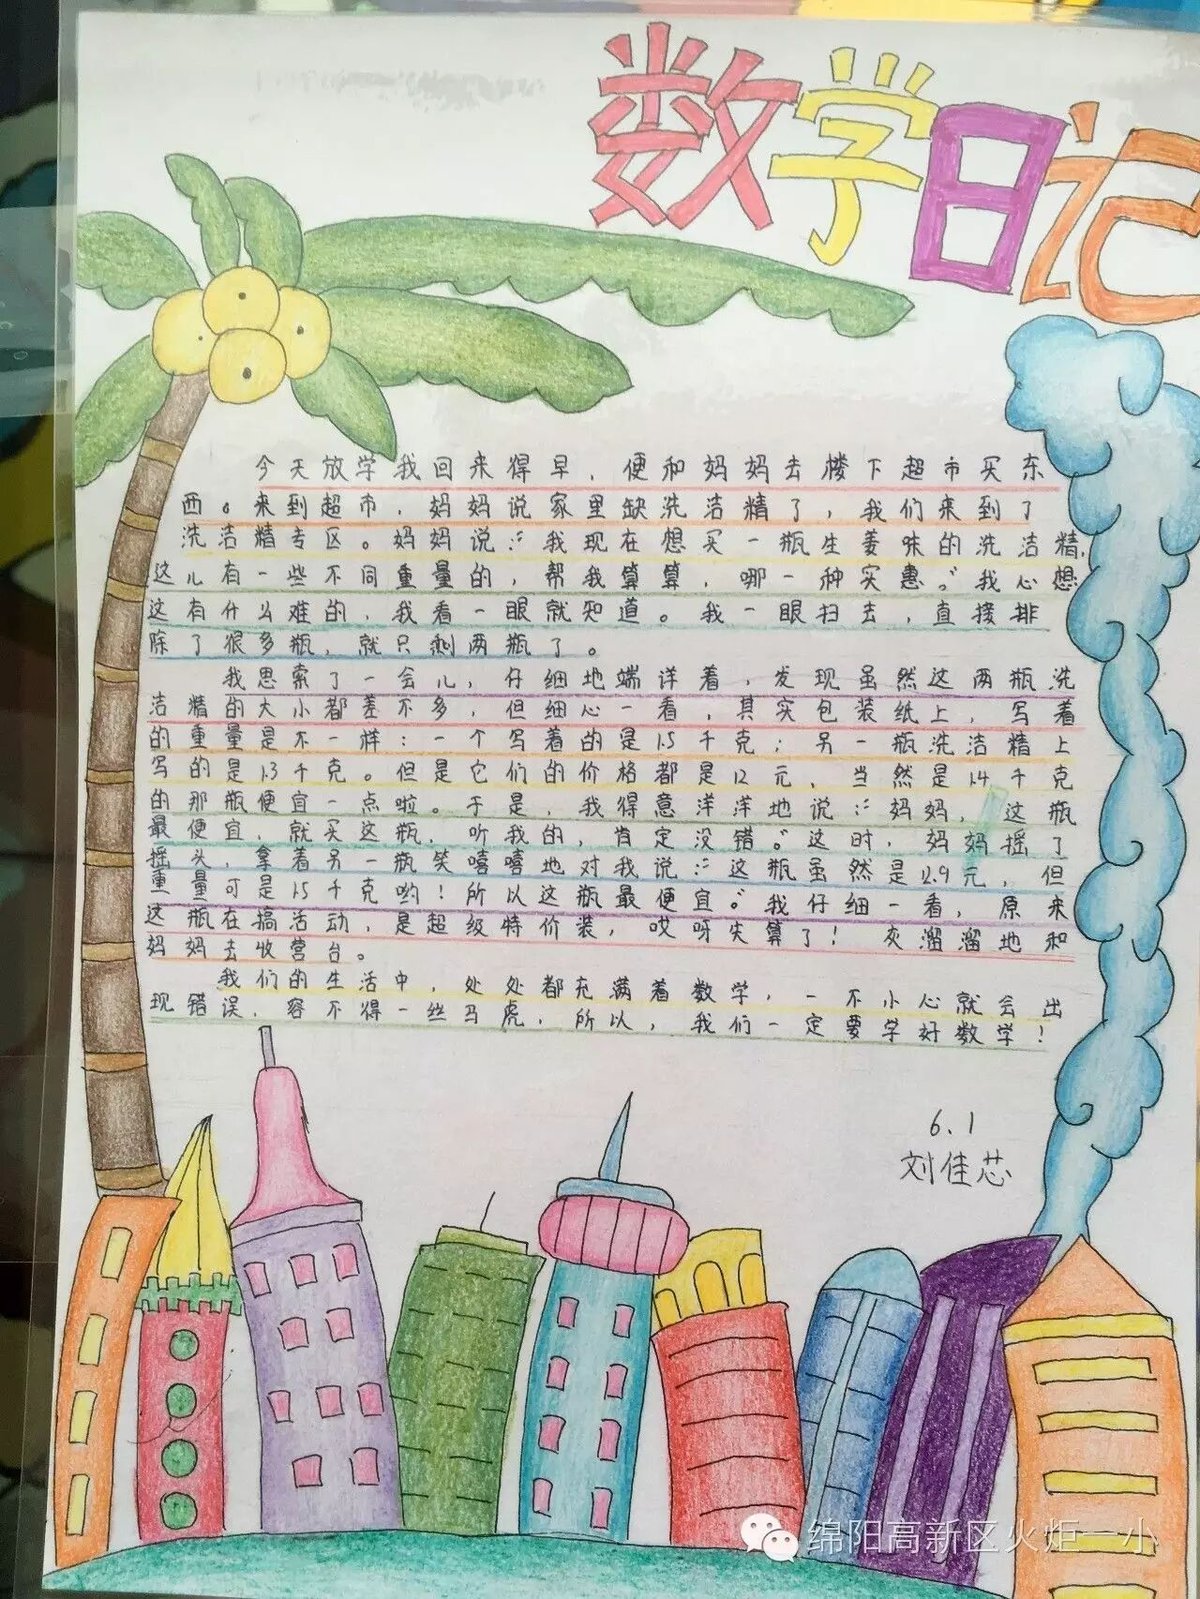 数学日记
今天放学我回来得早，便和妈妈去楼下超市买东
西。来到超市，妈妈说家里缺洗洁精了，我们来到了
洗洁精专区。妈妈说：“我现在想买一瓶生姜味的洗洁精，
这儿有一些不同重量的，帮我算算，哪一种实惠。”我心想
这有什么难的，我看一眼就知道。我一眼扫去，直接排
除了很多瓶，就只剩两瓶了。
我思索了一会儿，仔细地端详着，发现虽然这两瓶洗
洁精的大小都差不多，但细心一看，其实包装纸上，写着
的重量是不一样：一个写着的是1.5千克；另一瓶洗洁精上
写的是1.3千克。但是它们的价格都是12元，当然是1.4千克
的那瓶便宜一点啦。于是，我得意洋洋地说：“妈妈，这瓶
最便宜，就买这瓶，听我的，肯定没错。”这时，妈妈摇了
摇头，拿着另一瓶笑嘻嘻地对我说：“这瓶虽然是12.9元，但
重量可是1.5千克哟！所以这瓶最便宜。”我仔细一看，原来
这瓶在搞活动，是超级特价装，哎呀失算了！灰溜溜地和
妈妈去收营台。
我们的生活中，处处都充满着数学，一不小心就会出
现错误，容不得一丝马虎，所以，我们一定要学好数学！
6.1
刘佳芯
绵阳高新区火炬一小